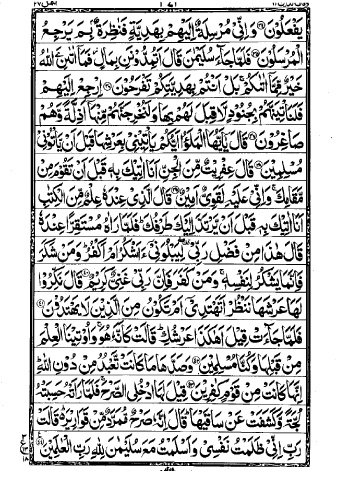 يَفْعَلُوْنَ ۝ وَاِنِّيْ مُرْسِلَةٌ اِلَيْهِمْ بِهَدِيَّةٍ فَنٰظِرَةٌۢ بِمَ يَرْجِعُ
الْمُرْسَلُوْنَ ۝ فَلَمَّا جَآءَ سُلَيْمٰنَ قَالَ اَتُمِدُّوْنَنِ بِمَالٍ فَمَآ اٰتٰىنِۦَ اللّٰهُ
خَيْرٌ مِّمَّآ اٰتٰىكُمْ ۚ بَلْ اَنْتُمْ بِهَدِيَّتِكُمْ تَفْرَحُوْنَ ۝ اِرْجِعْ اِلَيْهِمْ
فَلَنَاْتِيَنَّهُمْ بِجُنُوْدٍ لَّا قِبَلَ لَهُمْ بِهَا وَلَنُخْرِجَنَّهُمْ مِّنْهَآ اَذِلَّةً وَّهُمْ
صَاغِرُوْنَ ۝ قَالَ يٰٓاَيُّهَا الْمَلَؤُا اَيُّكُمْ يَاْتِيْنِيْ بِعَرْشِهَا قَبْلَ اَنْ يَّاْتُوْنِيْ
مُسْلِمِيْنَ ۝ قَالَ عِفْرِيْتٌ مِّنَ الْجِنِّ اَنَا اٰتِيْكَ بِهٖ قَبْلَ اَنْ تَقُوْمَ مِنْ
مَّقَامِكَ ۚ وَاِنِّيْ عَلَيْهِ لَقَوِيٌّ اَمِيْنٌ ۝ قَالَ الَّذِيْ عِنْدَهٗ عِلْمٌ مِّنَ الْكِتٰبِ
اَنَا اٰتِيْكَ بِهٖ قَبْلَ اَنْ يَّرْتَدَّ اِلَيْكَ طَرْفُكَ ؕ فَلَمَّا رَاٰهُ مُسْتَقِرًّا عِنْدَهٗ
قَالَ هٰذَا مِنْ فَضْلِ رَبِّيْ ۖ لِيَبْلُوَنِيْٓ ءَاَشْكُرُ اَمْ اَكْفُرُ ؕ وَمَنْ شَكَرَ
فَاِنَّمَا يَشْكُرُ لِنَفْسِهٖ ۚ وَمَنْ كَفَرَ فَاِنَّ رَبِّيْ غَنِيٌّ كَرِيْمٌ ۝ قَالَ نَكِّرُوْا
لَهَا عَرْشَهَا نَنْظُرْ اَتَهْتَدِيْٓ اَمْ تَكُوْنُ مِنَ الَّذِيْنَ لَا يَهْتَدُوْنَ ۝
فَلَمَّا جَآءَتْ قِيْلَ اَهٰكَذَا عَرْشُكِ ؕ قَالَتْ كَاَنَّهٗ هُوَ ۚ وَاُوْتِيْنَا الْعِلْمَ
مِنْ قَبْلِهَا وَكُنَّا مُسْلِمِيْنَ ۝ وَصَدَّهَا مَا كَانَتْ تَّعْبُدُ مِنْ دُوْنِ اللّٰهِ ؕ
اِنَّهَا كَانَتْ مِنْ قَوْمٍ كٰفِرِيْنَ ۝ قِيْلَ لَهَا ادْخُلِي الصَّرْحَ ۚ فَلَمَّا رَاَتْهُ حَسِبَتْهُ
لُجَّةً وَّكَشَفَتْ عَنْ سَاقَيْهَا ؕ قَالَ اِنَّهٗ صَرْحٌ مُّمَرَّدٌ مِّنْ قَوَارِيْرَ ؕ قَالَتْ
رَبِّ اِنِّيْ ظَلَمْتُ نَفْسِيْ وَاَسْلَمْتُ مَعَ سُلَيْمٰنَ لِلّٰهِ رَبِّ الْعٰلَمِيْنَ ۝